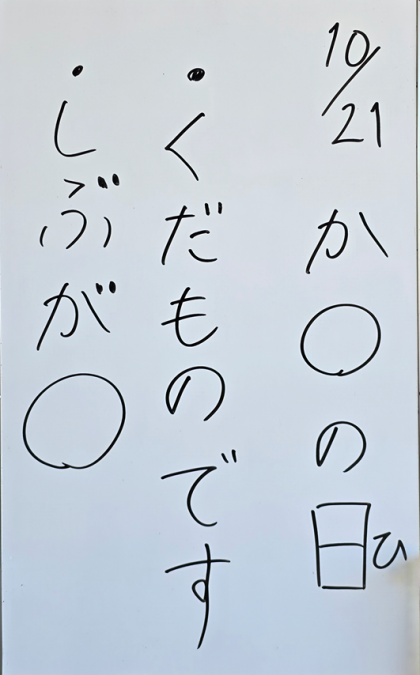 10/21 か〇の日ひ
・くだものです
・しぶが〇